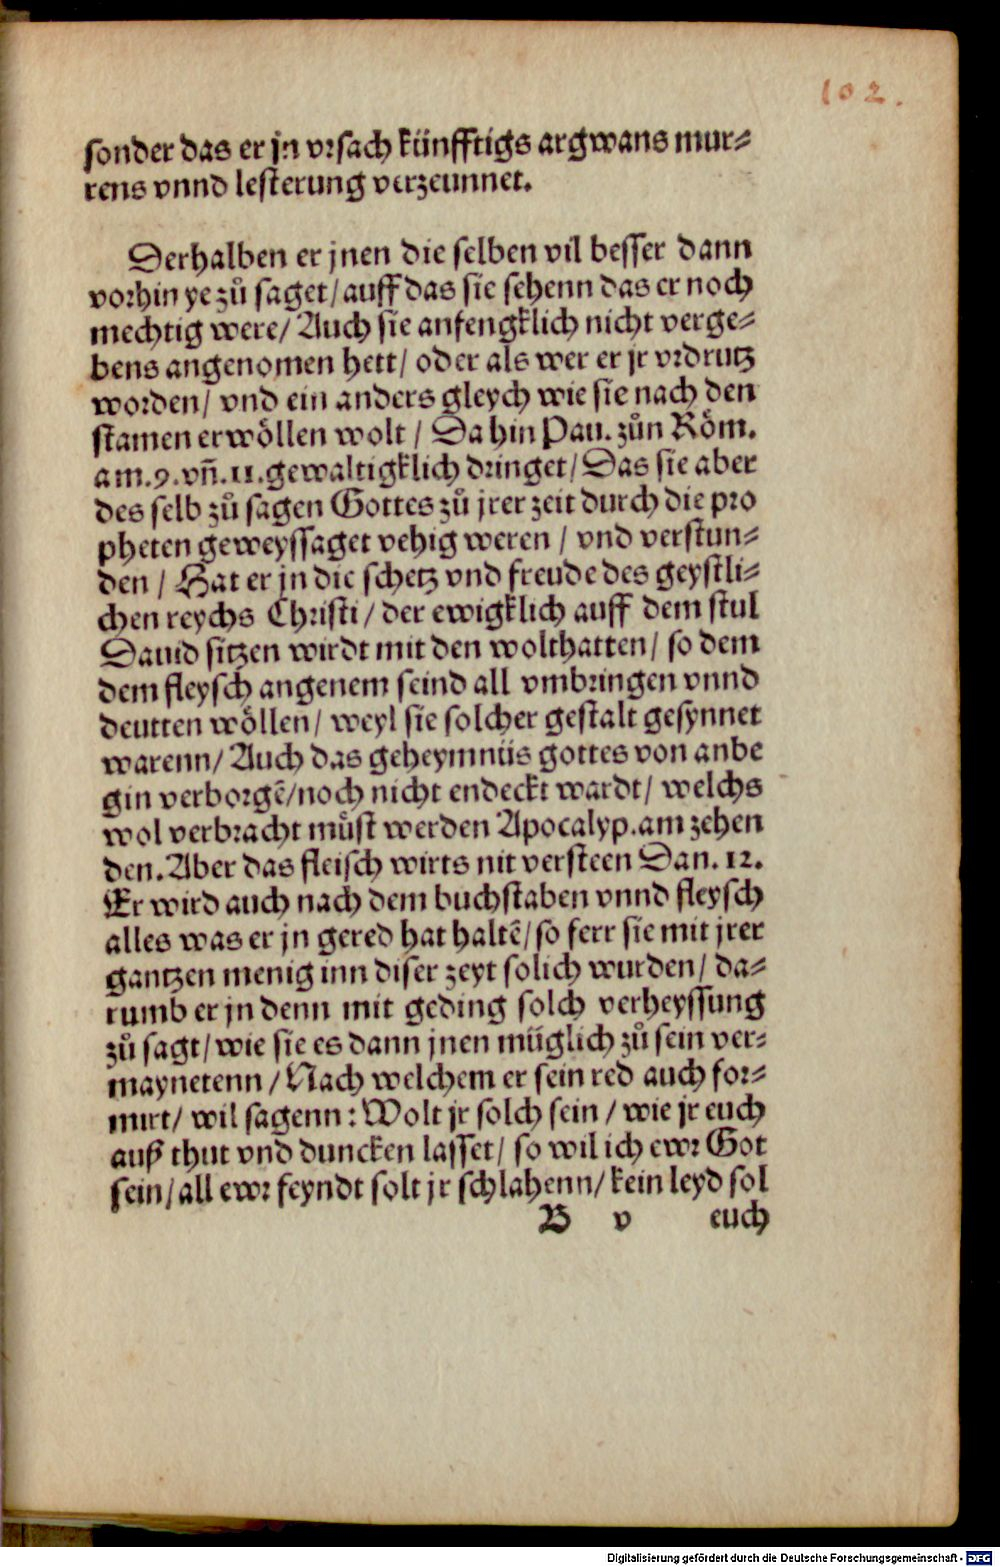 102.
sonder das er jn vrsach künfftigs argwans mur⸗
rens vnnd lesterung verzeunnet.
Derhalben er jnen die selben vil besser dann
vorhin ye zů saget/ auff das sie sehenn das er noch
mechtig were/ Auch sie anfengklich nicht verge⸗
bens angenomen hett/ oder als wer er jr vrdrutz
worden/ vnd ein anders gleych wie sie nach den
stamen erwöllen wolt / Da hin Pau. zůn Röm.
am.9.vñ.11.gewaltigklich dringet/ Das sie aber
des selb zů sagen Gottes zů jrer zeit durch die pro
pheten geweyssaget vehig weren / vnd verstun⸗
den / Hat er jn die schetz vnd freude des geystli⸗
chen reychs Christi/ der ewigklich auff dem stul
Dauid sitzen wirdt mit den wolthatten/ so dem
dem fleysch angenem seind all vmbringen vnnd
deutten wöllen/ weyl sie solcher gestalt gesynnet
warenn/ Auch das geheymnüs gottes von anbe
gin verborgẽ/noch nicht endeckt wardt/ welchs
wol verbracht můst werden Apocalyp.am zehen
den.Aber das fleisch wirts nit versteen Dan.12.
Er wird auch nach dem buchstaben vnnd fleysch
alles was er jn gered hat haltẽ/so ferr sie mit jrer
gantzen menig inn diser zeyt solich wurden/ da⸗
rumb er jn denn mit geding solch verheyssung
zů sagt/ wie sie es dann jnen müglich zů sein ver⸗
maynetenn /Nach welchem er sein red auch for⸗
mirt/ wil sagenn: Wolt jr solch sein / wie jr euch
auß thut vnd duncken lasset/ so wil ich ewr Got
sein/ all ewr feyndt solt jr schlahenn/ kein leyd sol
B v euch
Digitalisierung gefördert durch die Deutsche Forschungsgemeinschaft - DFG